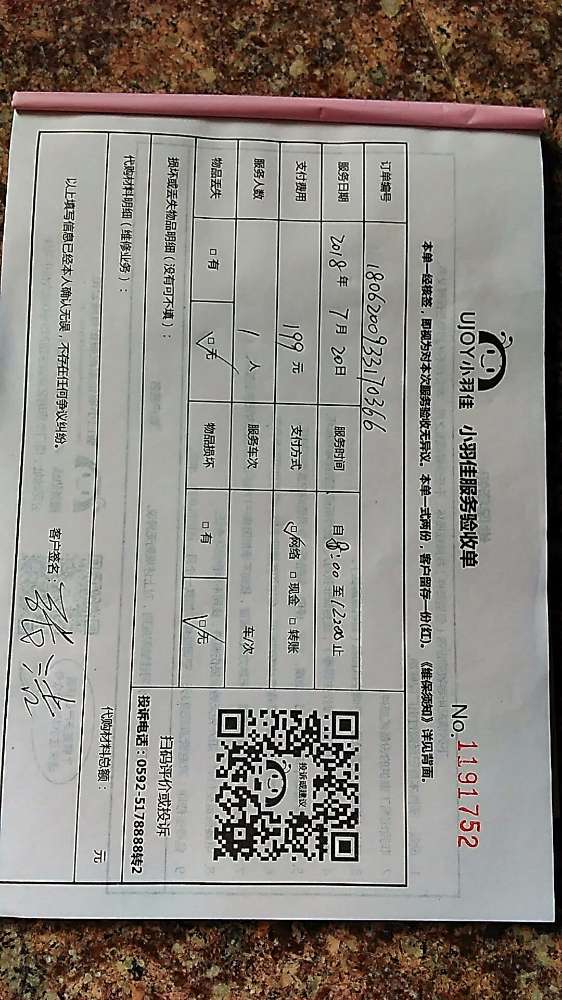 UJOY小羽佳 小羽佳服务验收单
No. 1191752
本单一经核签，即视为对本次服务验收无异议。本单一式两份，客户留存一份(红)。《维保须知》详见背面。
订单编号 1806200933170366
服务日期 2018年 7月 20日 服务时间 自 8:00 至 12:00 止
支付费用 199 元 支付方式 ☑网络 □现金 □转账
服务人数 1 人 服务车次 车/次
物品丢失 □有 ☑无 物品损坏 □有 ☑无
投诉或建议
扫码评价或投诉
投诉电话：0592-5178888转2
损坏或丢失物品明细（没有可不填）：
代购材料明细（维修业务）：
代购材料总额： 元
以上填写信息已经本人确认无误，不存在任何争议纠纷。 客户签名：